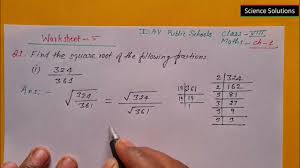 Science Solutions
Worksheet - 5
D.AV Public Schools
Class - VIII
Maths - Ch-1
Q1. Find the square root of the following fractions.
(i) 324/361
Ans:- √324/361 = √324/√361
19 361
19 19
1
2 324
2 162
3 81
3 27
3 9
3 3